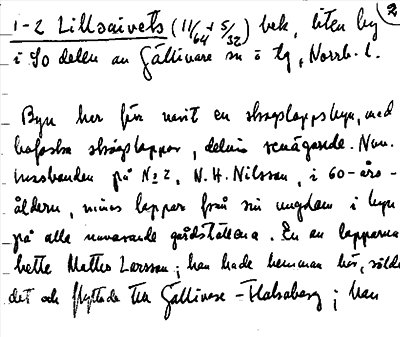 2
1-2 Lillsaivets (11/64 + 5/32) bek, liten by
i SO delen av Gällivare sn o tg, Norrb. l.
Byn har förr varit en skogslappsbyn, med
bofasta skogslappar, delvis renägande. Nuv.
husbonden på No 2, N. H. Nilsson, i 60-års-
åldern, minns lappar från sin ungdom i byn
på alla nuvarande gårdställena. En av lapparna
hette Mattes Larsson; han hade hemman här, sålde
det och flyttade till Gällivare - ; han